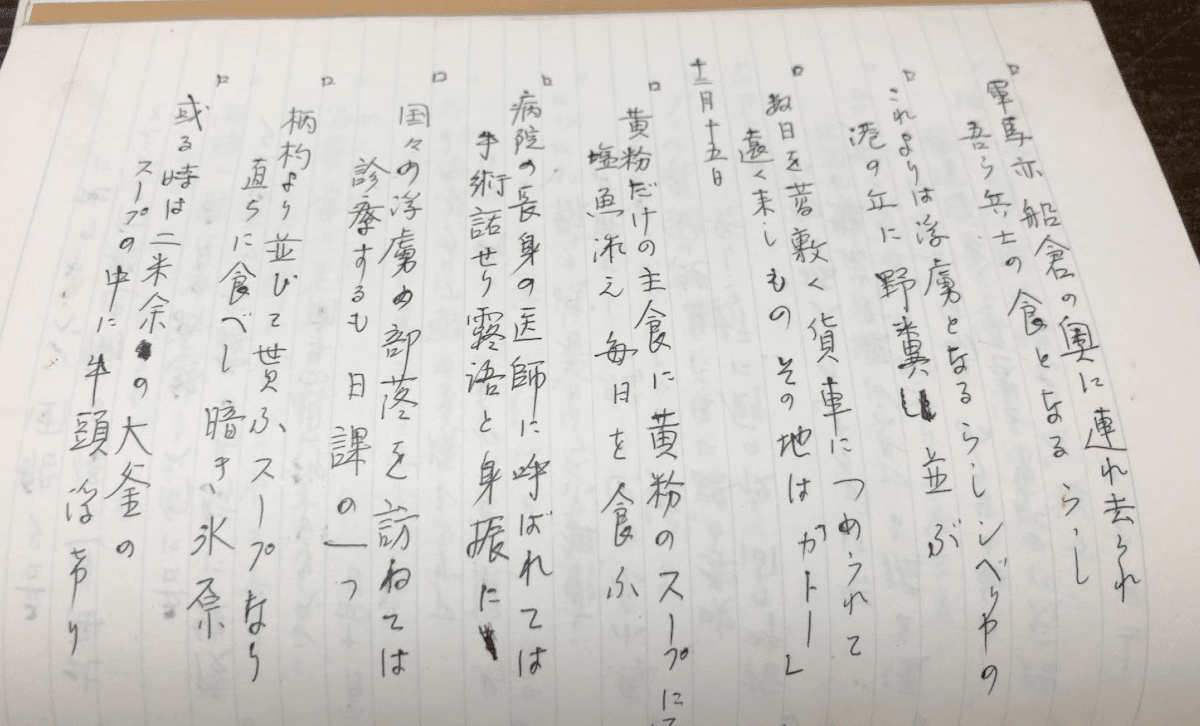 □軍馬亦船倉の奥に連れ去られ
吾ら兵士の食となるらし
□これよりは浮虜となるらしシベリヤの
港の丘に野糞し並ぶ
□数日を莟敷く貨車につめられて
遠く来しものその地は「カトー」
十二月十五日
□黄粉だけの主食に黄粉のスープに
塩魚添え毎日を食ふ
□病院の長身の医師に呼ばれては
手術話せり露語と身振に
□国々の浮虜の部落を訪ねては
診療するも日課の一つ
□柄杓より並びて貰ふスープなり
直ちに食べし暗き氷原
□或る時は二米余の大釜の
スープの中に牛頭浮ㇷ゙り